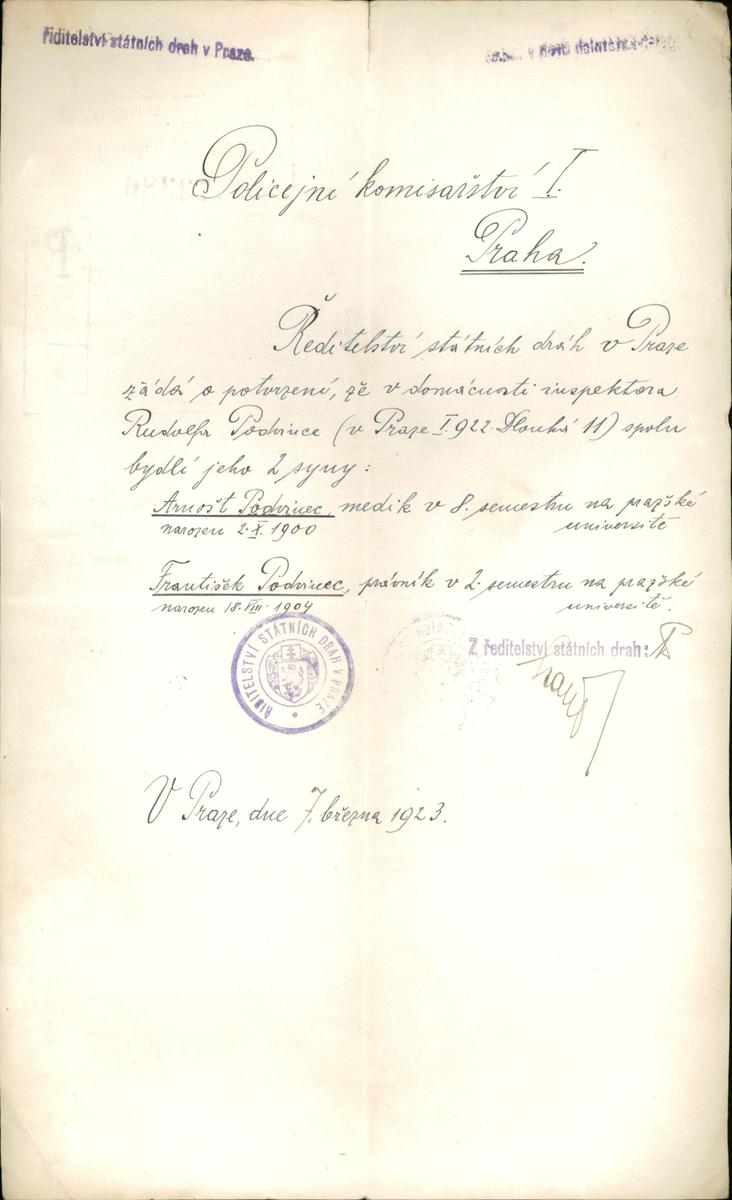 řiditelství státních drah v Praze.
Policejní komisařství I.
Praha.
Ředitelství státních dráh v Praze
žádá o potvrzení, že v domácnosti inspektora
Rudolfa Podvince (v Praze I. 922 Dlouhá 11) spolu
bydlí jeho 2 syny:
Arnošt Podvinec, medik v 8. semestru na pražské
narozen 2. X. 1900 universitě
František Podvinec, právník v 2. semestru na pražské
narozen 18. VIII. 1904 universitě.
ŘIDITELSTVÍ STÁTNÍCH DRAH V PRAZE
Z ředitelství státních drah:
V Praze, dne 7. března 1923.